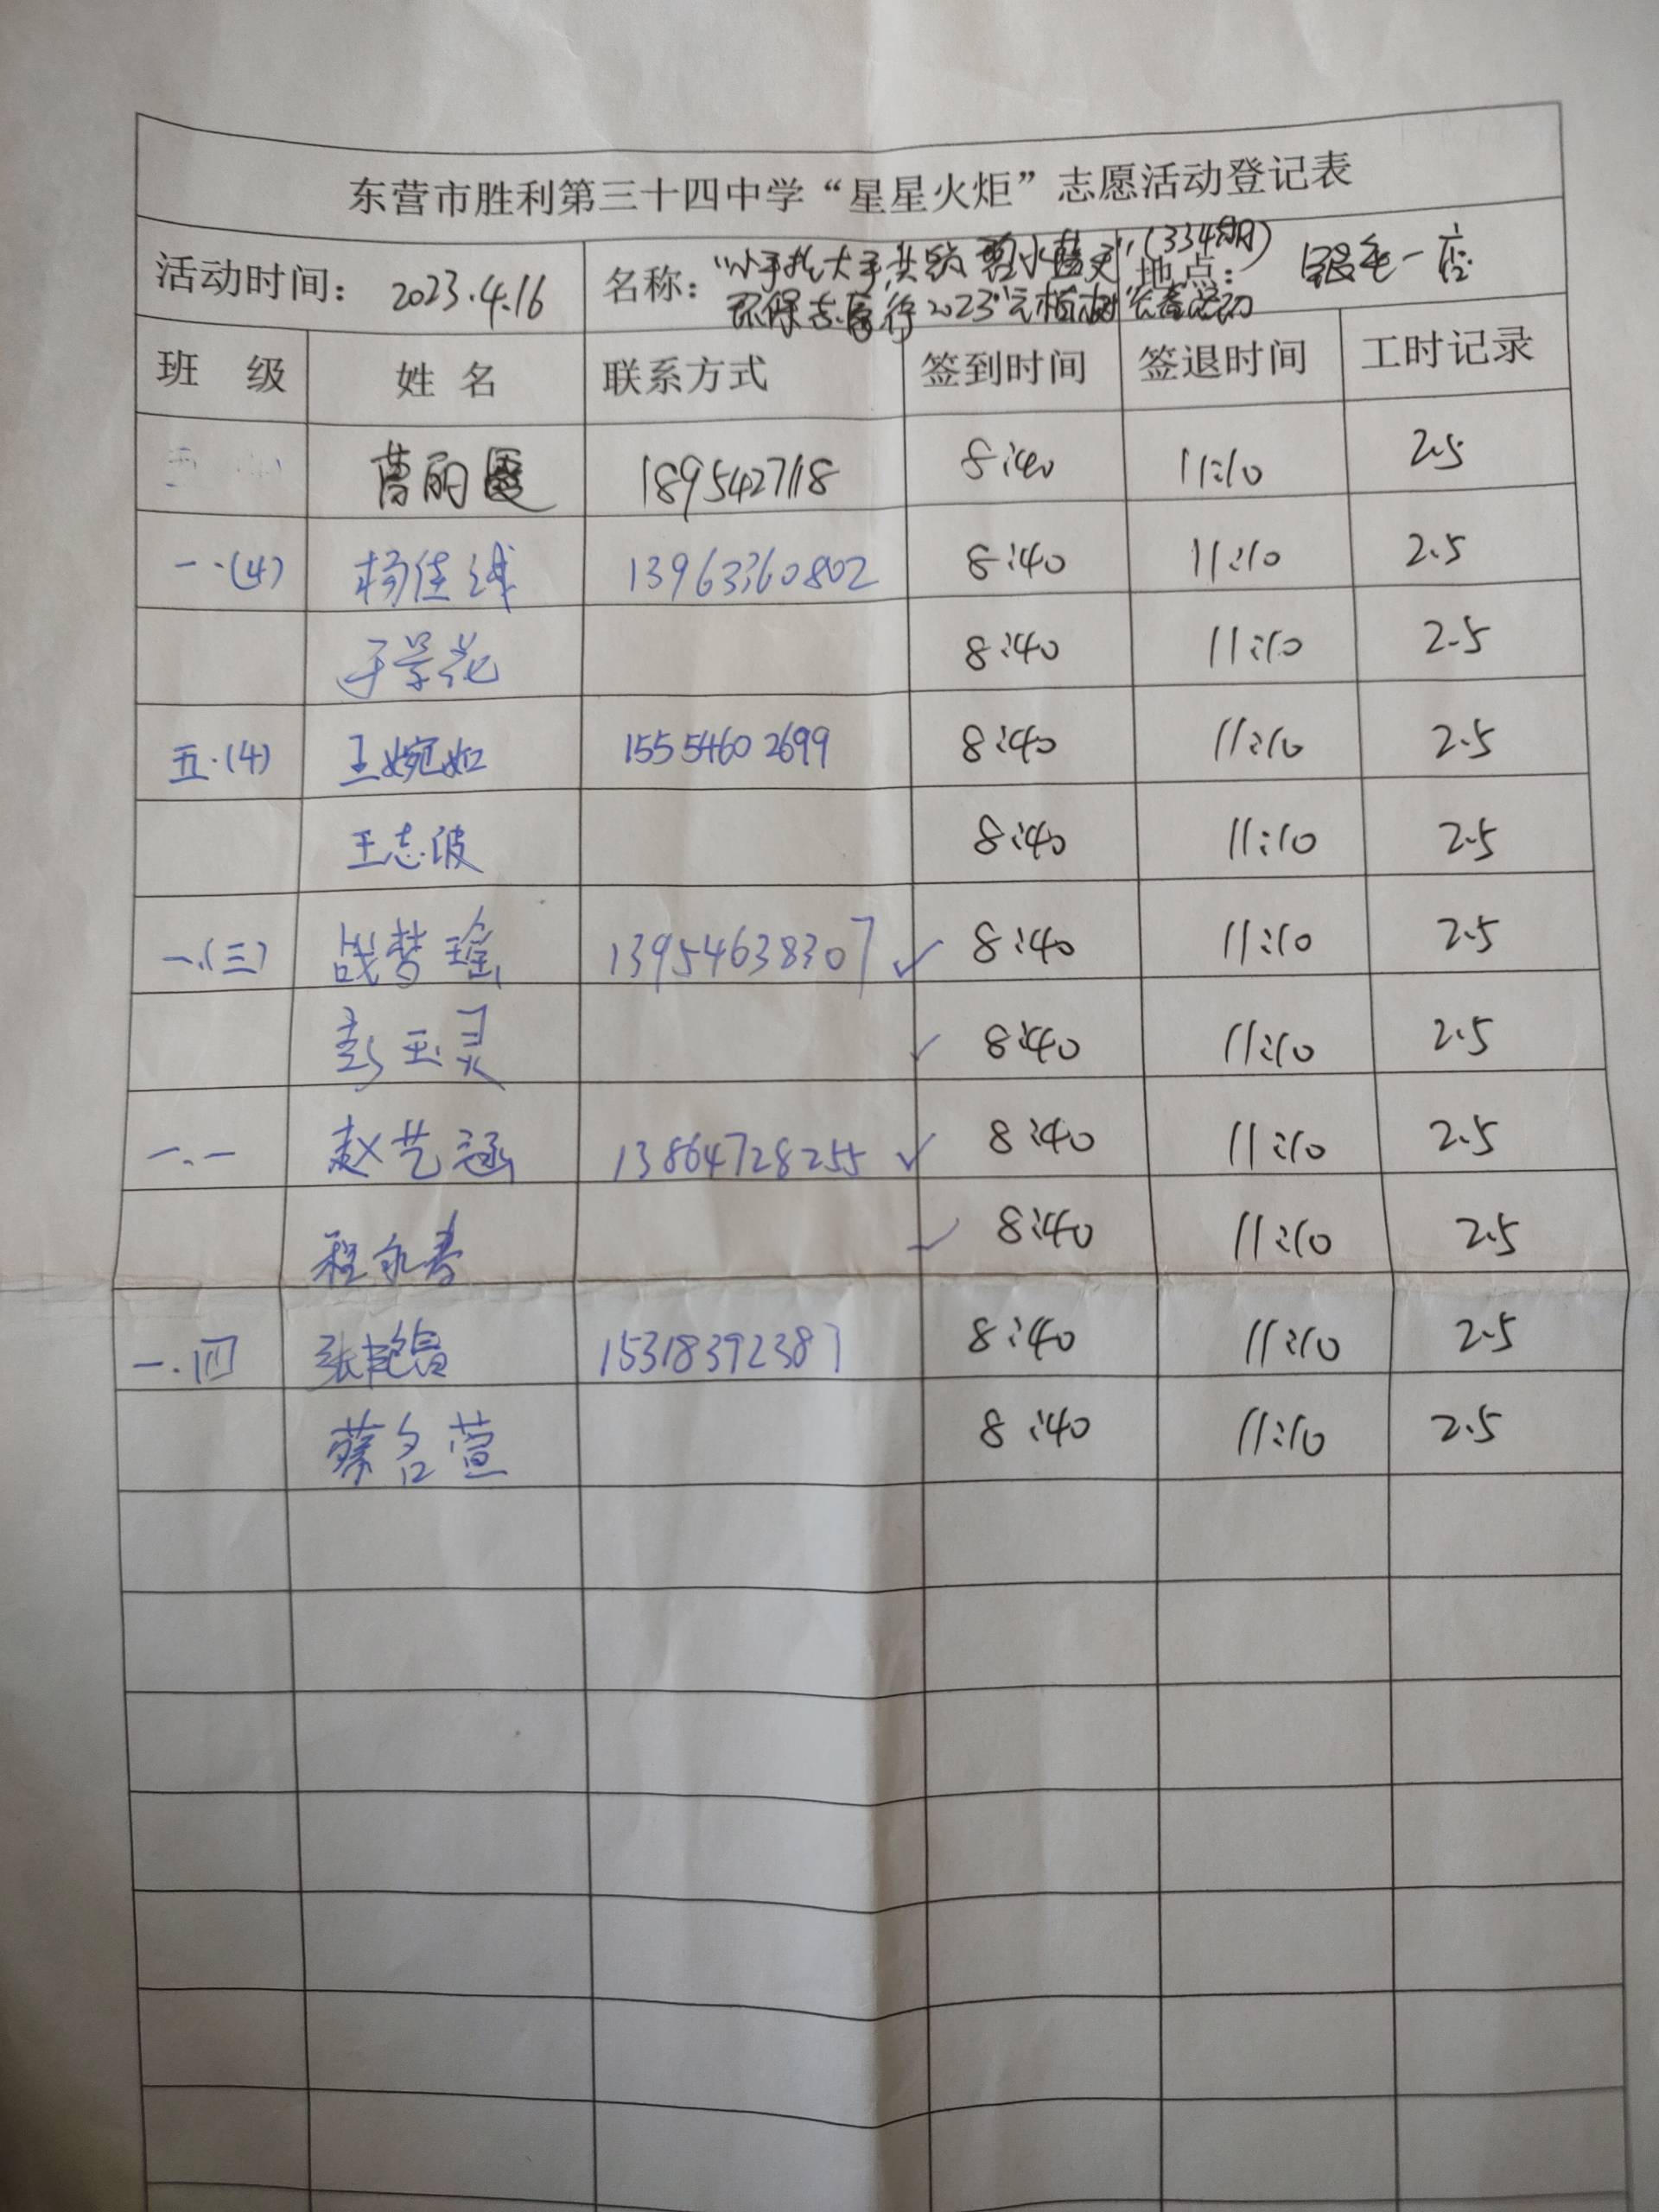 东营市胜利第三十四中学“星星火炬”志愿活动登记表
活动时间： 2023.4.16 名称： “小手拉大手,共筑碧水蓝天”(334期) 地点： 银毛一店
环保志愿行2023
班 级 姓 名 联系方式 签到时间 签退时间 工时记录
曹丽霞 1895427118 8:40 11:10 2.5
一.(4) 杨佳 13963360802 8:40 11:10 2.5
于景花 8:40 11:10 2.5
五.(4) 王婉如 15554602699 8:40 11:10 2.5
王志波 8:40 11:10 2.5
一.(三) 战梦瑶 13954638307 ✓ 8:40 11:10 2.5
彭玉灵 ✓ 8:40 11:10 2.5
一.一 赵艺涵 13864728255 ✓ 8:40 11:10 2.5
程永春 ✓ 8:40 11:10 2.5
一.四 张 15318392387 8:40 11:10 2.5
蔡名萱 8:40 11:10 2.5